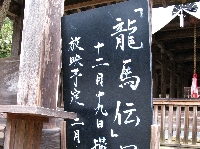 「龍馬伝」
十二月十九日
放映予定 二月